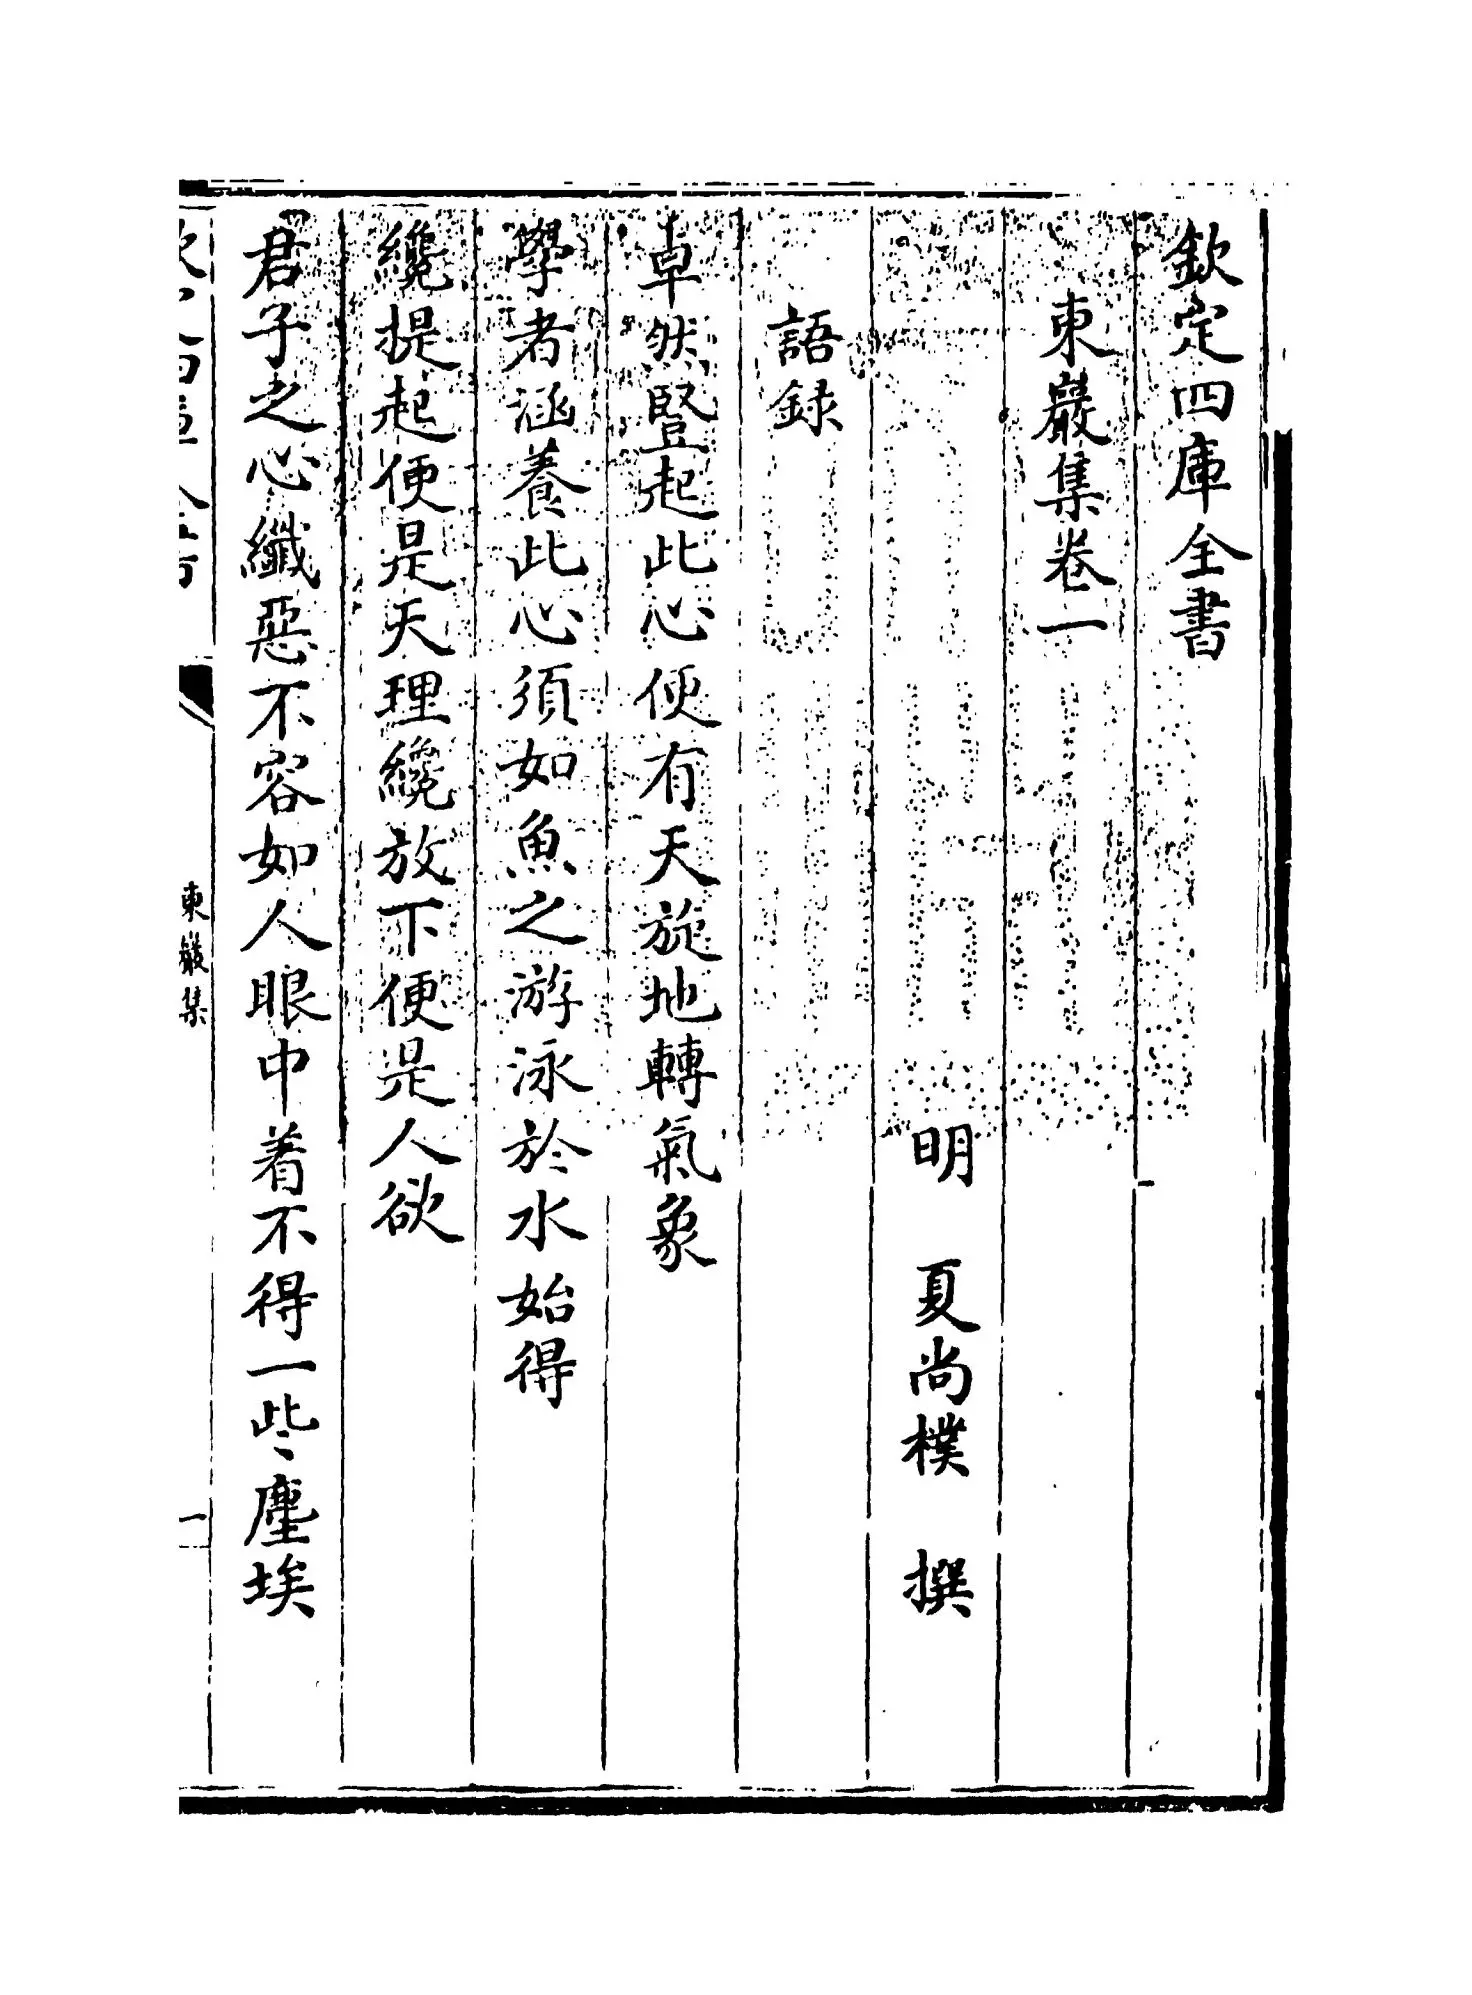 欽定四庫全書
東巖集卷一
明 夏尚樸 撰
語録
卓然豎起此心便有天旋地轉氣象
學者涵養此心須如魚之游泳於水始得
纔提起便是天理纔放下便是人欲
君子之心纖惡不容如人眼中着不得一些塵埃
東巖集
一